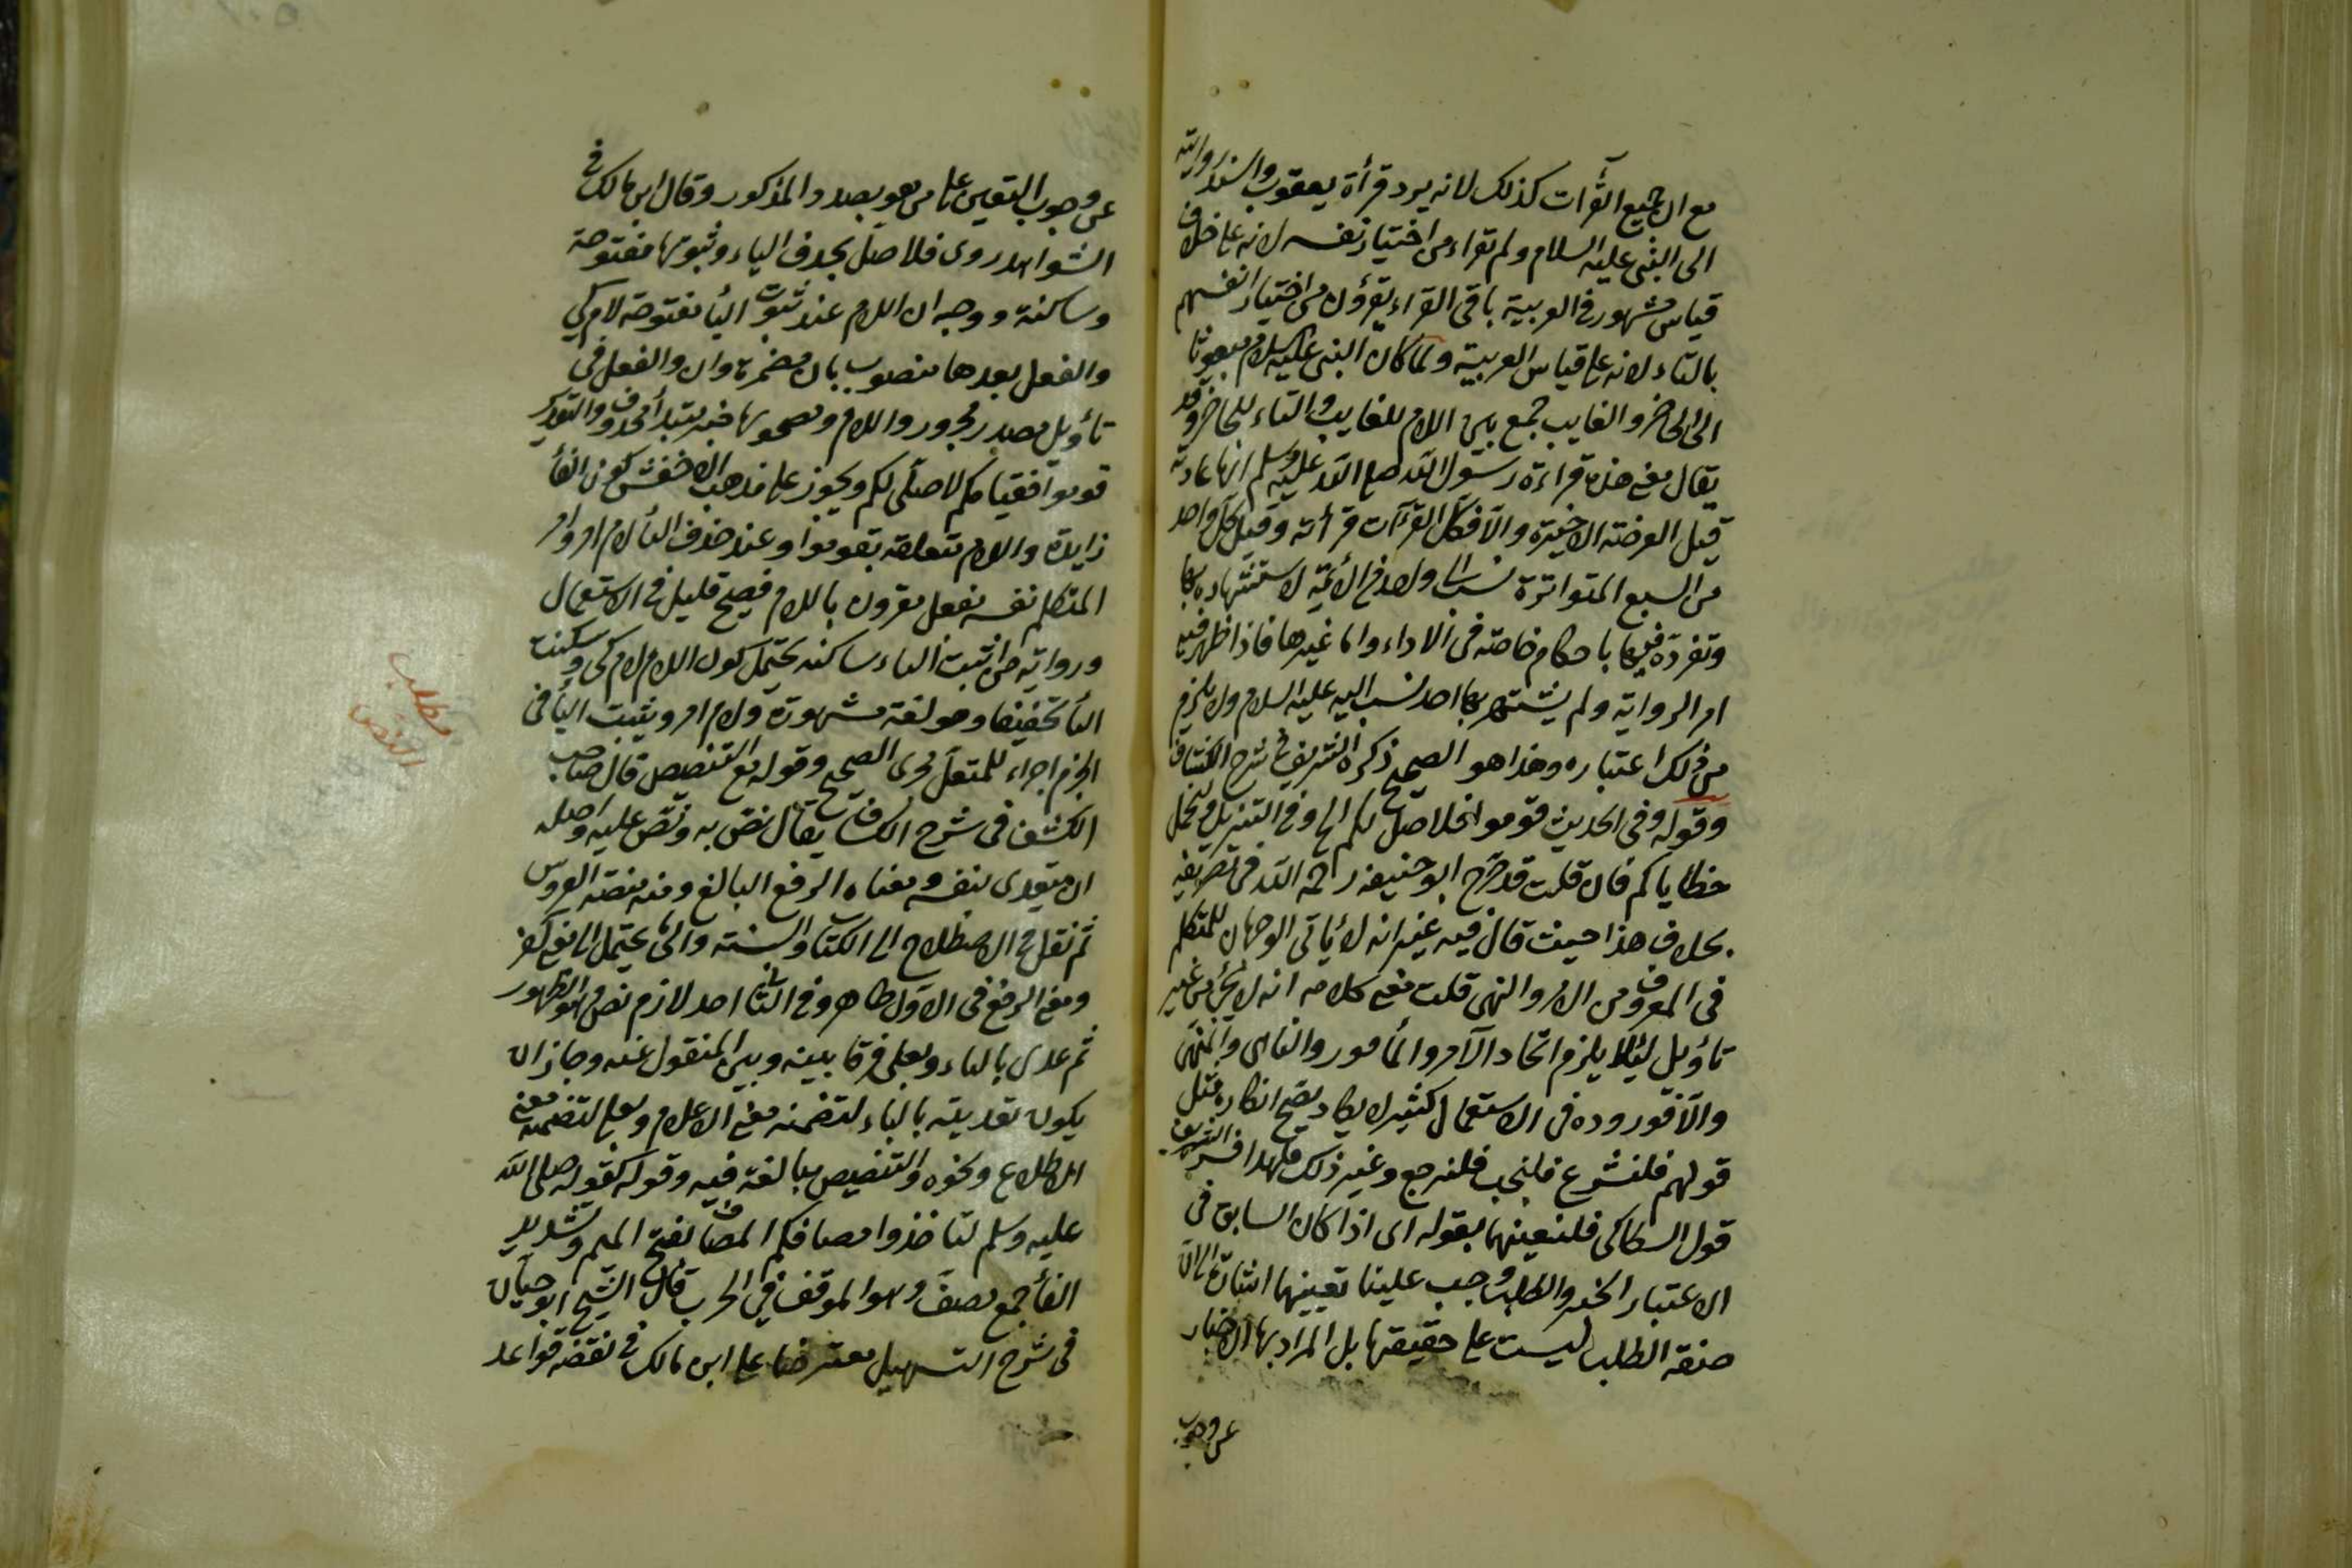 مع ان جميع القرآات كذلك لانه يرد قرأة يعقوب
الى النبى عليه السلام ولم تقراء من اختيار نفسه لانه على خلاف
قياس مشهور فى العربية باقى القراء يقرؤن من اختيار انفسهم
بالتاء لانه على قياس العربية ولما كان النبى عليه السلام مبعوثا
الى الحاضر والغايب جمع بين اللام للغايب والتاء للحاضر وقد
يقال معنى هذه قراءة رسول الله صلى الله عليه وسلم انها عادته
قبل العرضة الاخيرة والا فكل القرآات قرأته وقيل كل واحد
من السبع المتواترة نسب الى واحد من الائمة لاشتهاره بها
وتفرده فيها باحكام خاصة فى الاداء واما غيرها فاذا ظهر فيه
امر الرواية ولم يشتهر بها احد نسب اليه عليه السلام ولا يلزم
من ذلك اعتباره وهذا هو الصحيح ذكره الشريف فى شرح الكشاف
وقوله وفى الحديث قوموا فلاصل لكم الخ وفى التنزيل ولنحمل
خطاياكم فان قلت قد صرح ابو حنيفة رحمه الله فى تصريفه
بخلاف هذا حيث قال فيه غير انه لا يأتى الوجهان للمتكلم
فى المعروف من الامر والنهى قلت معنى كلامه انه لا يجئ من غير
تأويل لئلا يلزم اتحاد الآمر والمأمور والناهى والمنهى
والا فوروده فى الاستعمال كثير لا يكاد يصح انكاره مثل
قولهم فلنشرع فلنجب فلنرجع وغير ذلك فلهذا فسر الشريف
قول السكاكى فلنعينهما بقوله اى اذا كان السابق فى
الاعتبار الخبر والطلب وجب علينا تعيينهما اشارة الى ان
صيغة الطلب ليست على حقيقتها بل المراد بها الاخبار
عن وجوب
عن وجوب التعيين على من هو بصدد المذكور وقال ابن مالك فى
الشواهد روى فلاصل بحذف الياء وثبوتها مفتوحة
وساكنة ووجه ان اللام عند ثبوت اليأ مفتوحة لام كى
والفعل بعدها منصوب بان مضمرة وان والفعل فى
تأويل مصدر مجرور واللام ومصحوبها خبر مبتدأ محذوف والتقدير
قوموا فقيامكم لاصلى لكم ويجوز على مذهب الاخفش كون الفأ
زايدة واللام متعلقة بقوموا وعند حذف اليأ لام امر وامر
المتكلم نفسه بفعل مقرون باللام فصيح قليل فى الاستعمال
ورواية من اثبت الياء ساكنة يحتمل كون اللام لام كى وسكنت
اليأ تخفيفا وهو لغة مشهورة ولام امر ويثبت اليأ فى
الجزم اجراء للمعتل مجرى الصحيح وقوله مع التنصيص قال صاحب
الكشف فى شرح الكشاف يقال نص به ونص عليه واصله
ان يتعدى بنفسه ومعناه الرفع البالغ ومنه منصة العروس
ثم نقل فى الاصطلاح الى الكتاب والسنة والى ما لا يحتمل الا معنى
ومعنى الرفع فى الاول ظاهر وفى الثانى احد لازم نص وهو الظهور
ثم عدى بالباء وبعلى فرقا بينه وبين المنقول عنه وجاز ان
يكون تعديته بالباء لتضمنه معنى الاعلام وبعلى لتضمنه معنى
الاطلاع ونحوه والتنصيص مبالغة فيه وقوله كقوله صلى الله
عليه وسلم لتأخذوا مصافكم المصاف بفتح الميم وتشديد
الفأ جمع مصف وهو الموقف فى الحرب قال الشيخ ابو حيان
فى شرح التسهيل معترضا على ابن مالك فى نقضه قواعد
مطلب
النص